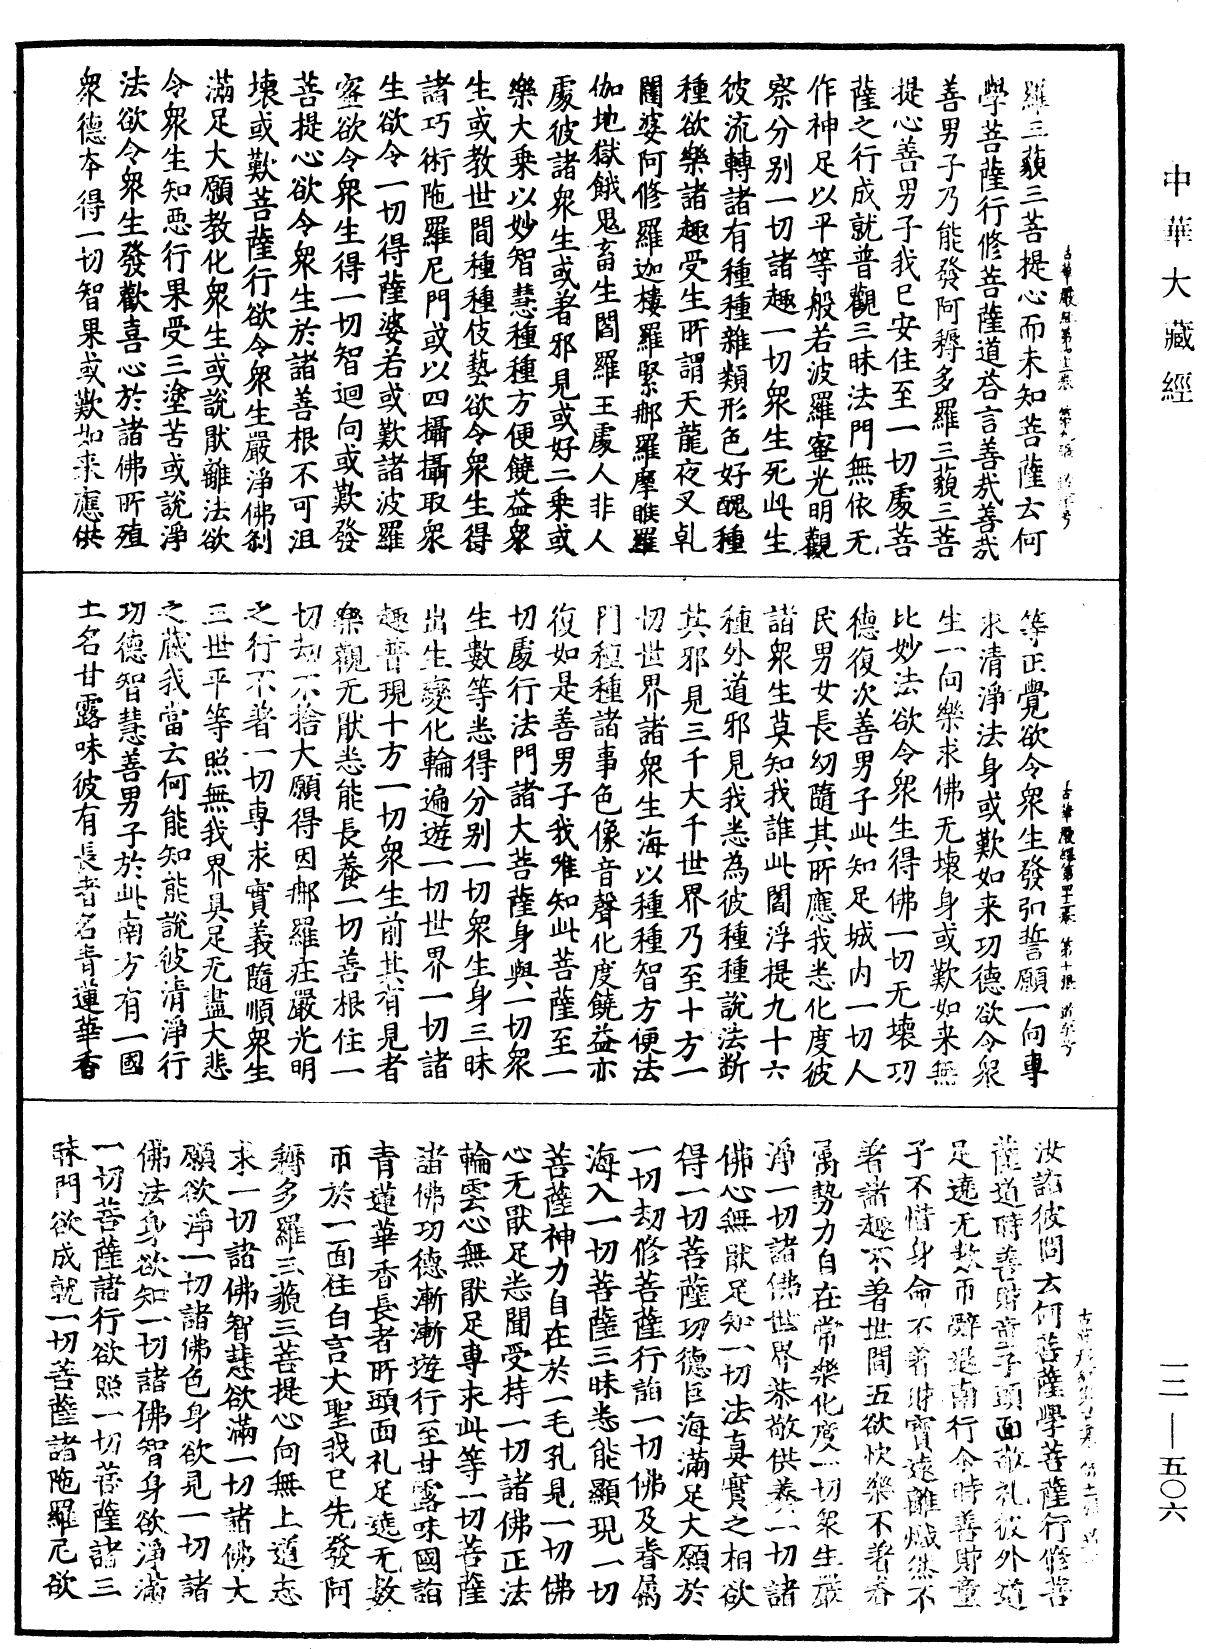 中華大藏經
羅三藐三菩提心而未知菩薩云何
學菩薩行修菩薩道荅言善㢤善㢤
善男子乃能發阿耨多羅三藐三菩
提心善男子我已安住至一切處菩
薩之行成就普觀三昧法門無依无
作神足以平等般若波羅蜜光明觀
察分别一切諸趣一切衆生死此生
彼流轉諸有種種雜類形色好醜種
種欲樂諸趣受生所謂天龍夜叉乹
闥婆阿修羅迦樓羅緊那羅摩睺羅
伽地獄餓鬼畜生閻羅王處人非人
處彼諸衆生或著邪見或好二乗或
樂大乗以妙智慧種種方便饒益衆
生或教世間種種伎藝欲令衆生得
諸巧術陁羅尼門或以四攝攝取衆
生欲令一切得薩婆若或歎諸波羅
蜜欲令衆生得一切智迴向或歎發
菩提心欲令衆生於諸善根不可沮
壊或歎菩薩行欲令衆生嚴淨佛刹
滿足大願教化衆生或説猒離法欲
令衆生知惡行果受三塗苦或説淨
法欲令衆生發歡喜心於諸佛所殖
衆德本得一切智果或歎如来應供
等正覺欲令衆生發弘誓願一向專
求清淨法身或歎如来功德欲令衆
生一向樂求佛无壊身或歎如来無
比妙法欲令衆生得佛一切无壊功
德復次善男子此知足城内一切人
民男女長幼隨其所應我悉化度彼
諸衆生莫知我誰此閻浮提九十六
種外道邪見我悉為彼種種説法断
其邪見三千大千世界乃至十方一
切世界諸衆生海以種種智方便法
門種種諸事色像音聲化度饒益亦
復如是善男子我唯知此菩薩至一
切處行法門諸大菩薩身與一切衆
生數等悉得分别一切衆生身三昧
出生變化輪遍遊一切世界一切諸
趣普現十方一切衆生前其有見者
樂觀无猒悉能長養一切善根住一
切劫不捨大願得因那羅莊嚴光明
之行不著一切專求實義隨順衆生
三世平等照無我界具足无盡大悲
之藏我當云何能知能説彼清淨行
功德智慧善男子於此南方有一國
土名甘露味彼有長者名青蓮華香
汝詣彼問云何菩薩學菩薩行修菩
薩道時善財童子頭面敬礼彼外道
足遶无數帀辭退南行令時善財童
子不惜身命不著財寶遠離熾然不
著諸趣不著世間五欲快樂不著眷
屬勢力自在常樂化度一切衆生嚴
淨一切諸佛世界恭敬供養一切諸
佛心無猒足知一切法真實之相欲
得一切菩薩功德巨海滿足大願於
一切劫修菩薩行詣一切佛及眷屬
海入一切菩薩三昧悉能顯現一切
菩薩神力自在於一毛孔見一切佛
心无猒足悉聞受持一切諸佛正法
輪雲心無猒足專求此等一切菩薩
諸佛功德漸漸遊行至甘露味國詣
青蓮華香長者所頭面礼足遶无數
帀於一面住白言大聖我已先發阿
耨多羅三藐三菩提心向無上道志
求一切諸佛智慧欲滿一切諸佛大
願欲淨一切諸佛色身欲見一切諸
佛法身欲知一切諸佛智身欲淨滿
一切菩薩諸行欲照一切菩薩諸三
昧門欲成就一切菩薩諸陁羅尼欲
一二—五〇六